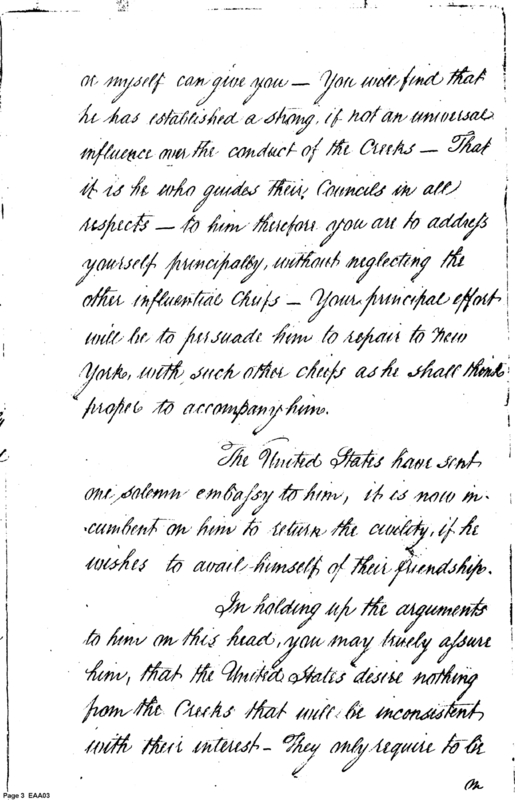 or myself can give you — You will find that
he has established a strong, if not an universal
influence over the conduct of the Creeks — That
it is he who guides their Councils in all
respects — to him therefore you are to address
yourself principally, without neglecting the
other influential Chiefs — Your principal effort
will be to persuade him to repair to New
York, with such other cheifs as he shall think
proper to accompany him.
The United States have sent
one solemn embassy to him, it is now in-
-cumbent on him to return the civility, if he
wishes to avail himself of their friendship.
In holding up the arguments
to him on this head, you may truely assure
him, that the United States desire nothing
from the Creeks that will be inconsistent
with their interest - They only require to be
Page 3 EAA03